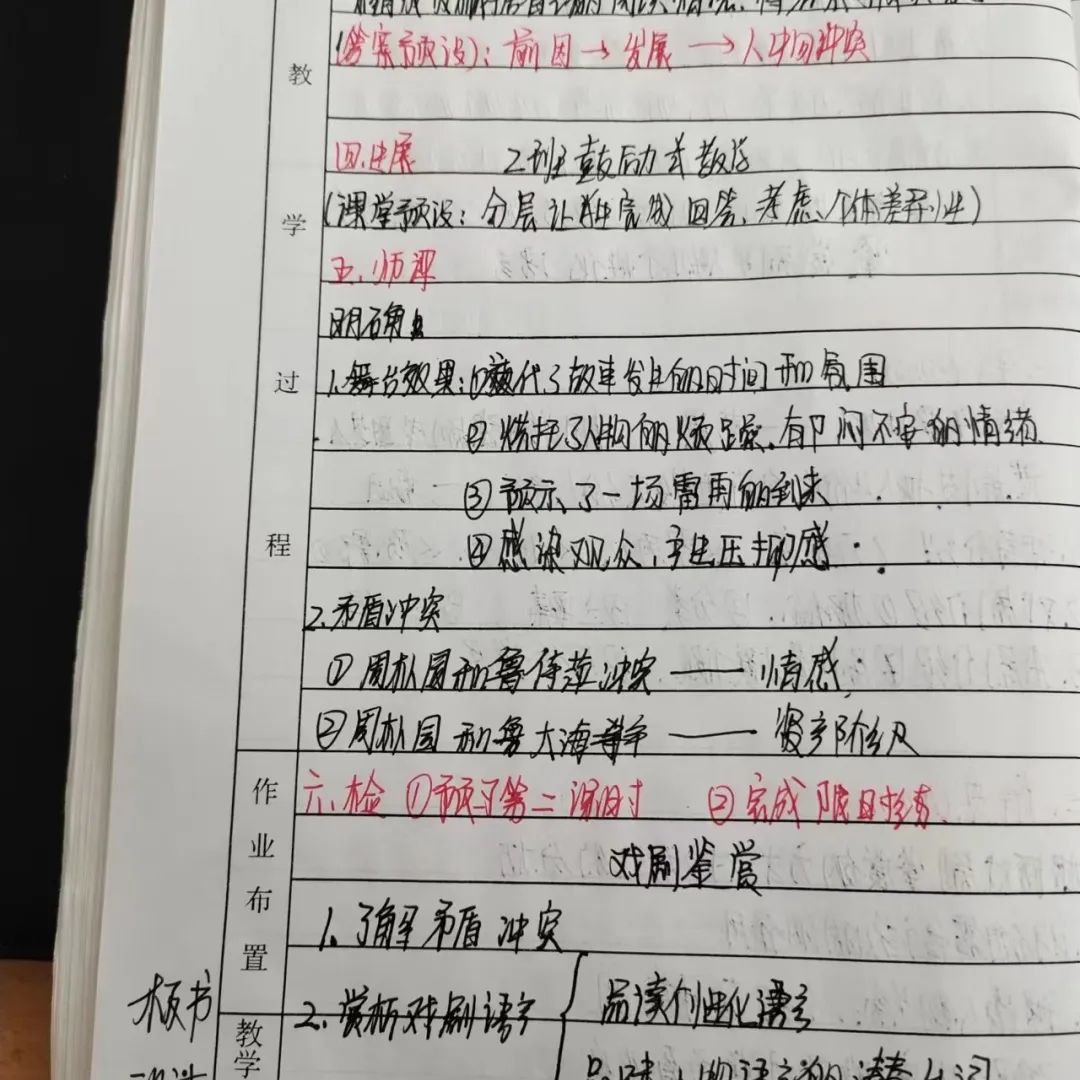 (答案预设):前因→发展→人物间冲突
教
四.生展 2班鼓励式教学
学
(课堂预设:分层让独自完成回答、考虑个体差异性)
五、师评
明确
过
1.舞台效果:①交代了故事发生的时间和氛围
②烘托了人物的烦躁、郁闷不安的情绪.
③预示了一场雷雨的到来
程
④感染观众,产生压抑感.
2.矛盾冲突
①周朴园和鲁侍萍冲突——情感
②周朴园和鲁大海——资产阶级
作业布置
六.检 ①预习第二课时 ②完成限时
戏剧鉴赏
1.了解矛盾冲突
板书
2.赏析戏剧语言
品读个性化语言
教学
品味人物语言的潜台词